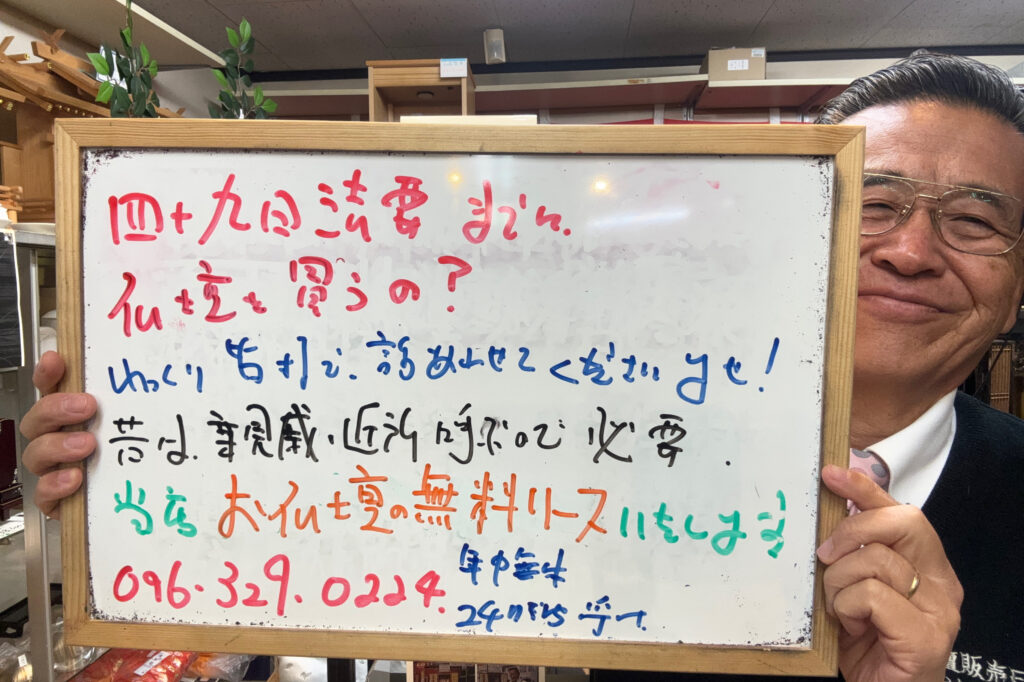 四十九日法要までに、
仏壇を買うの？
ゆっくり 当店で、詰め
くださいませ！
昔は、親戚、近所 呼ぶので 必要、
当店 お仏壇の無料リース いたします
096.329.0224.
年中無休
24
壇販売